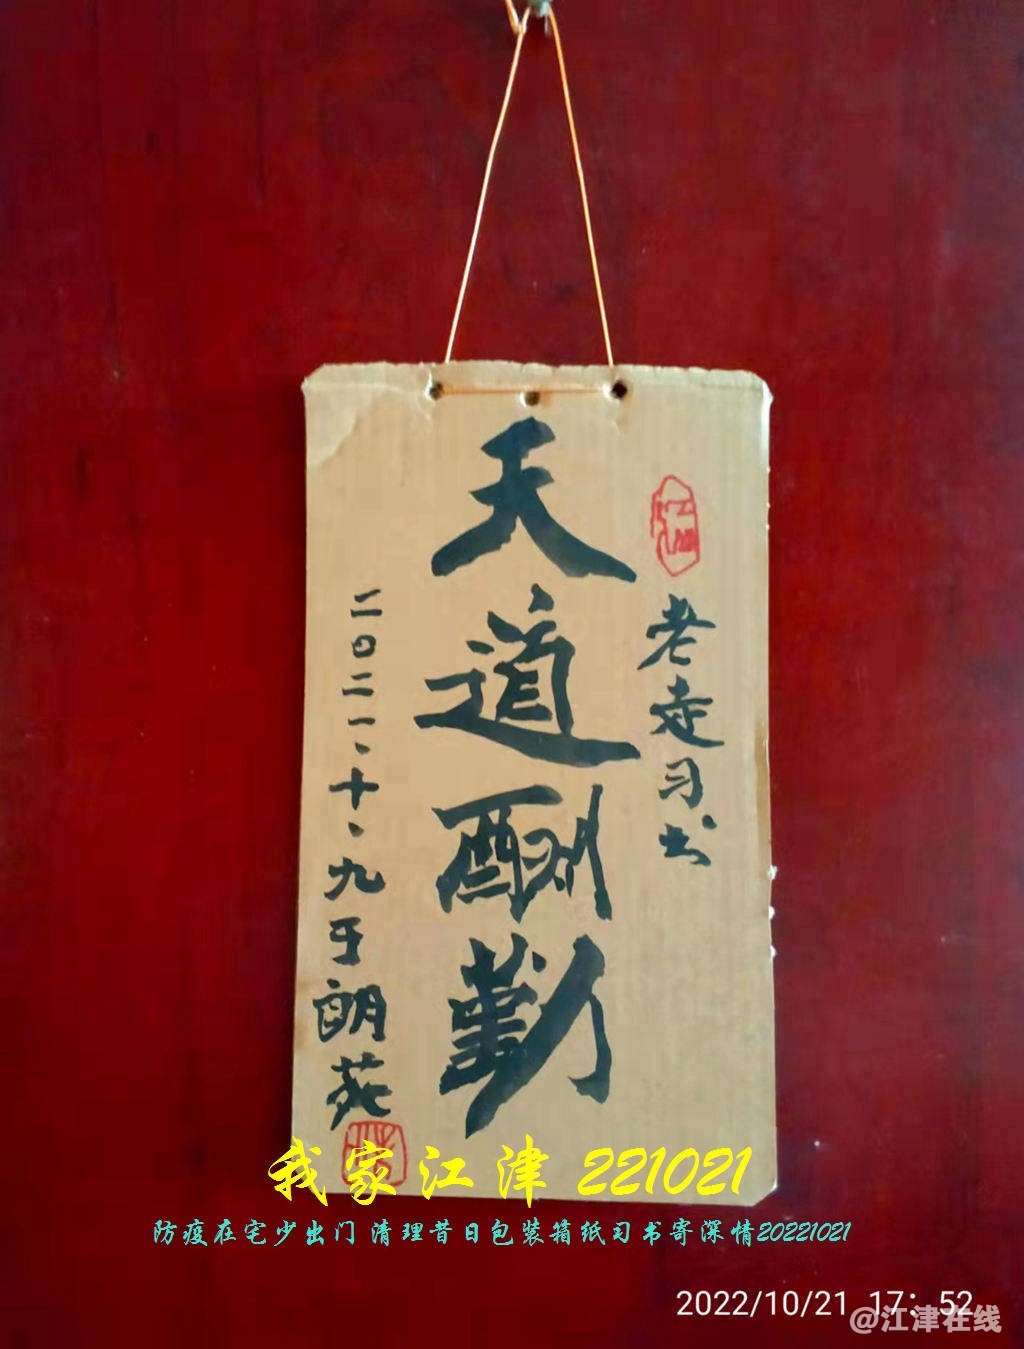 天道酬勤
老走习书
二〇二一、十、九于朗苑
我家江津 221021
防疫在宅少出门 清理昔日包装箱纸习书寄深情20221021
2022/10/21 17:52
@江津在线